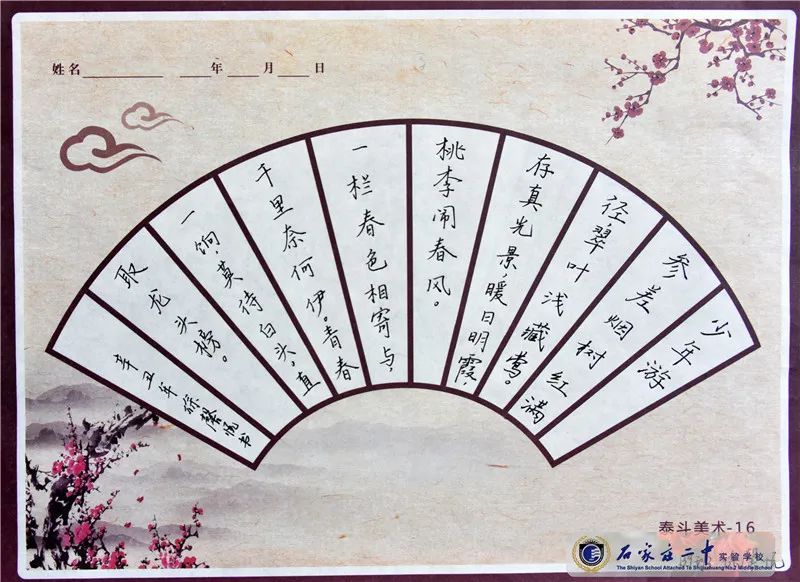 姓名 年 月 日
少年游
参差烟树红满
径翠叶浅藏莺。
存真光景,暖日明霞,
桃李闹春风。
一栏春色相寄与,
千里奈何伊。青春
一饷,莫待白头,直
取龙头榜。
辛丑年徐馨悦书
泰斗美术-16
石家庄二中 实验学校
The Shiyan School Attached To Shijiazhuang No.2 Middle School